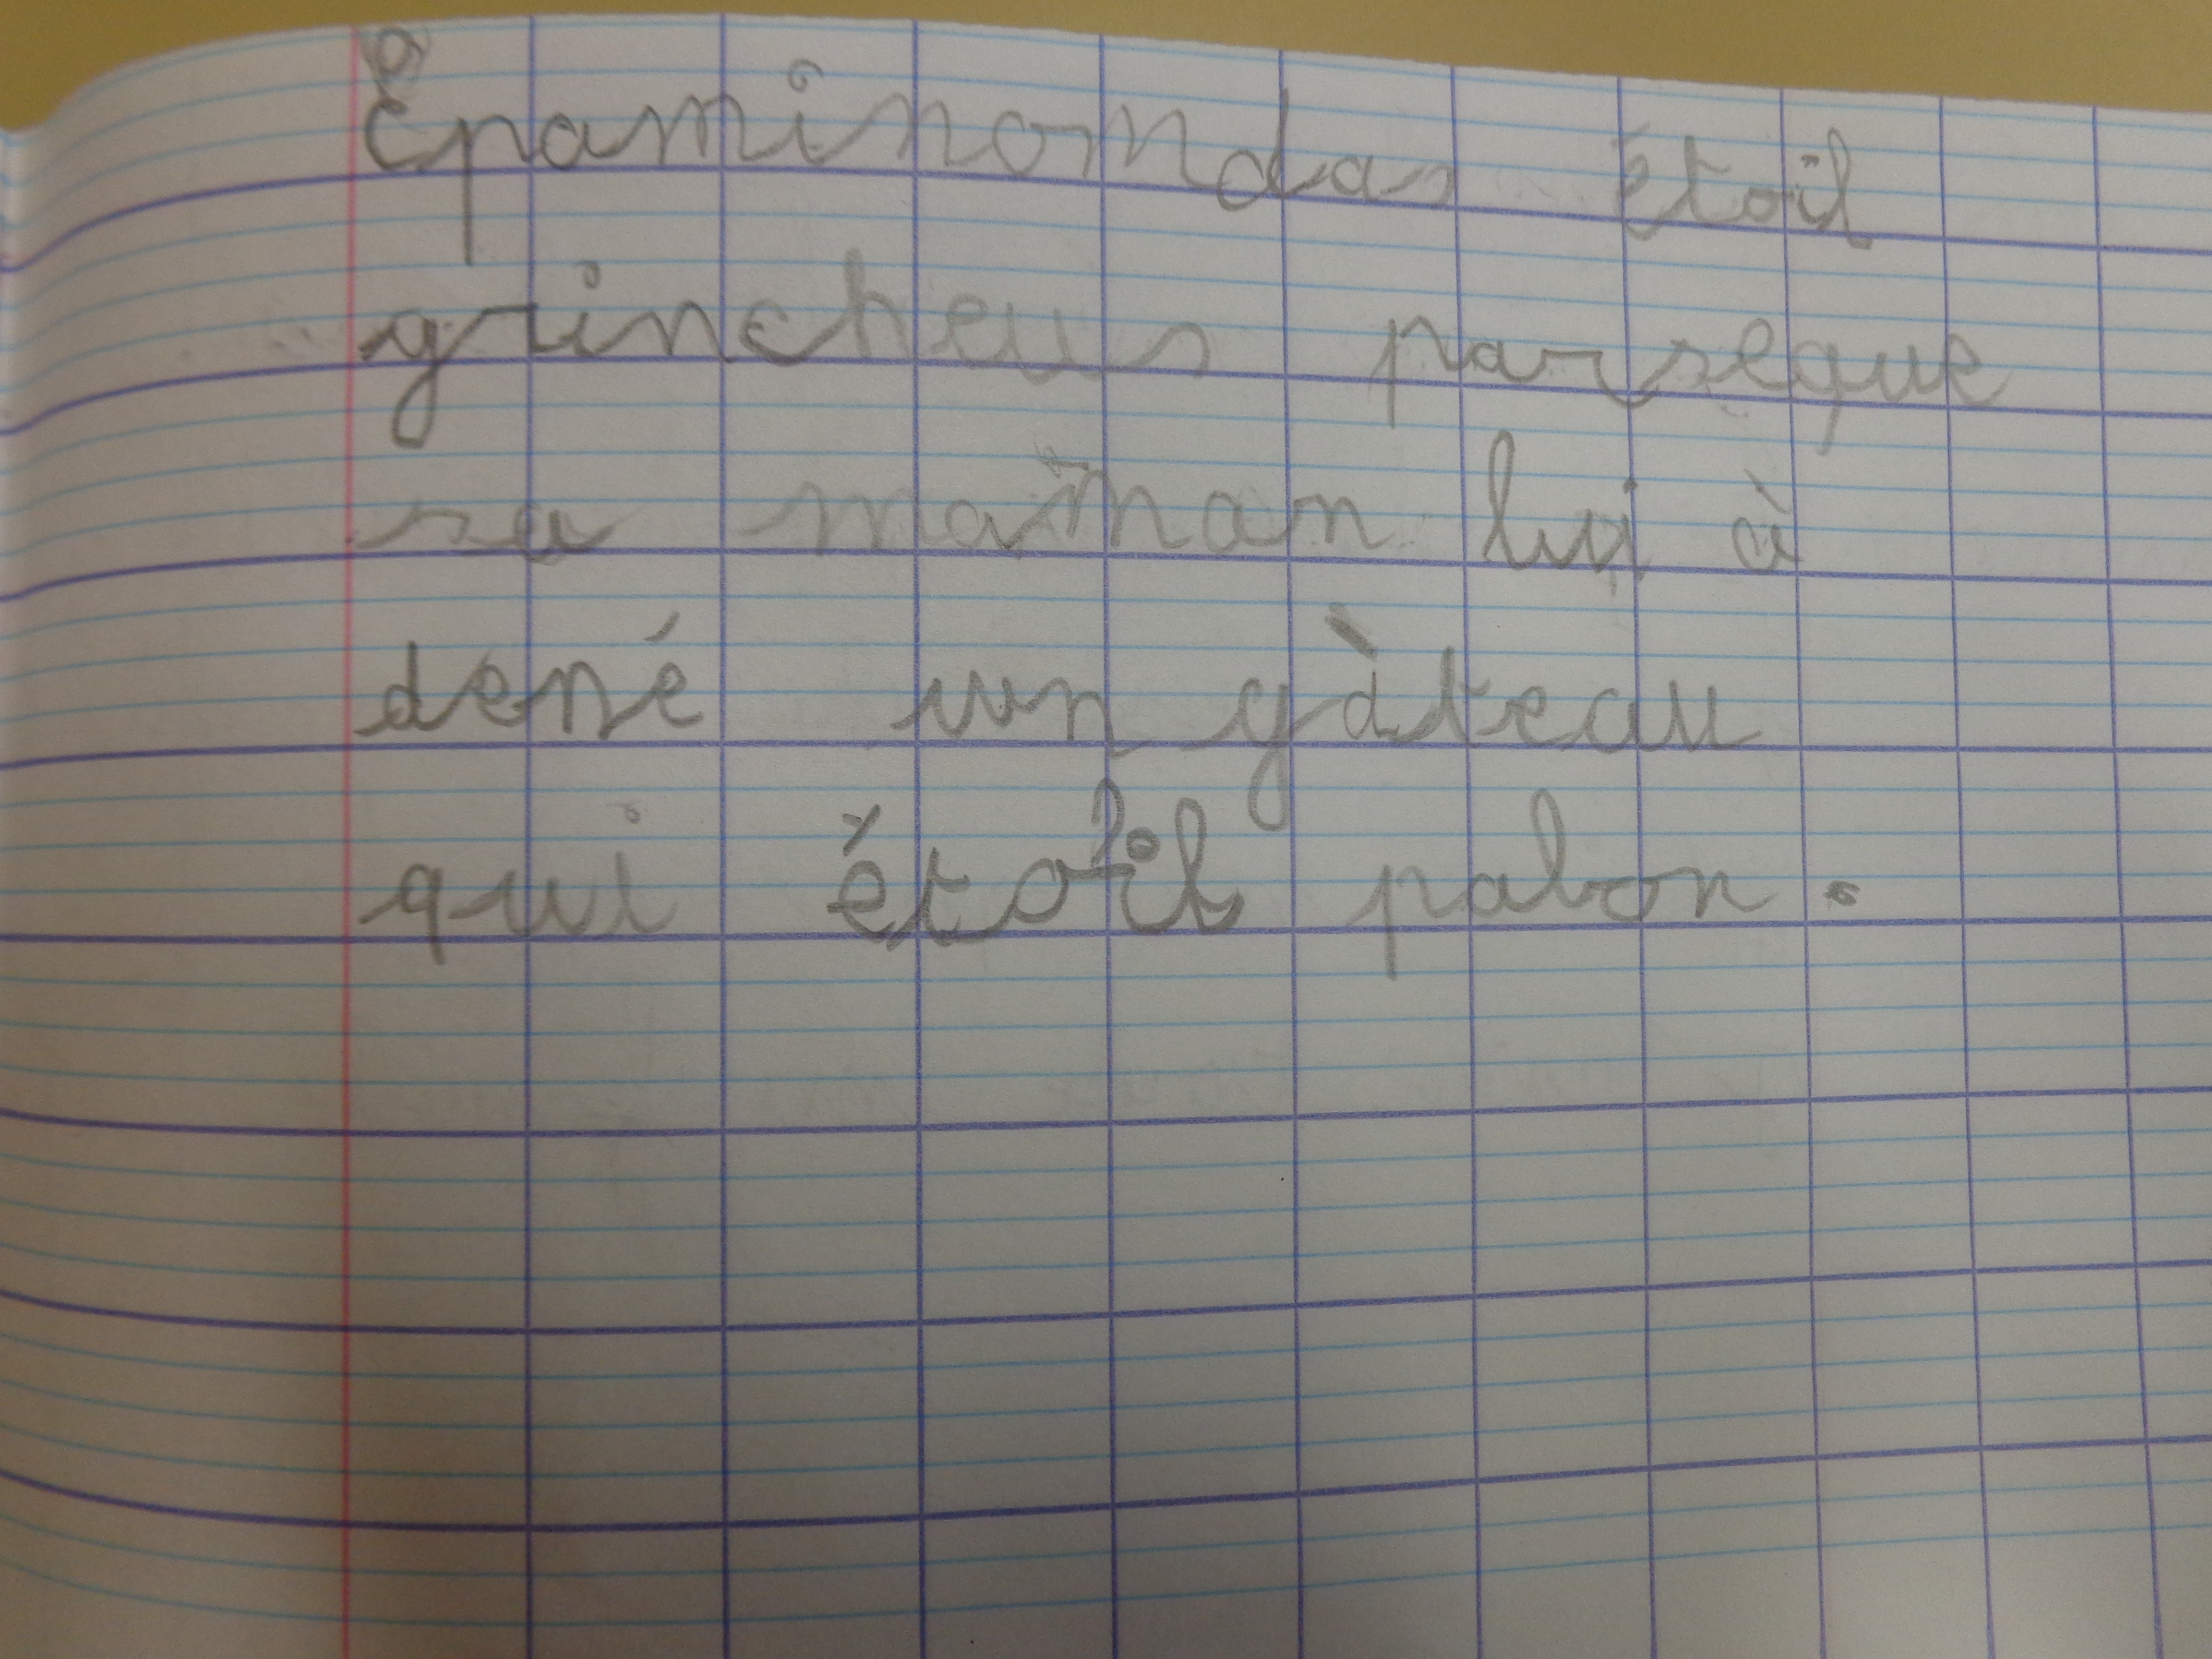 Epaminondas étoil
grincheus parseque
sa maman lui à
dené un gàteau
qui étoil pabon.